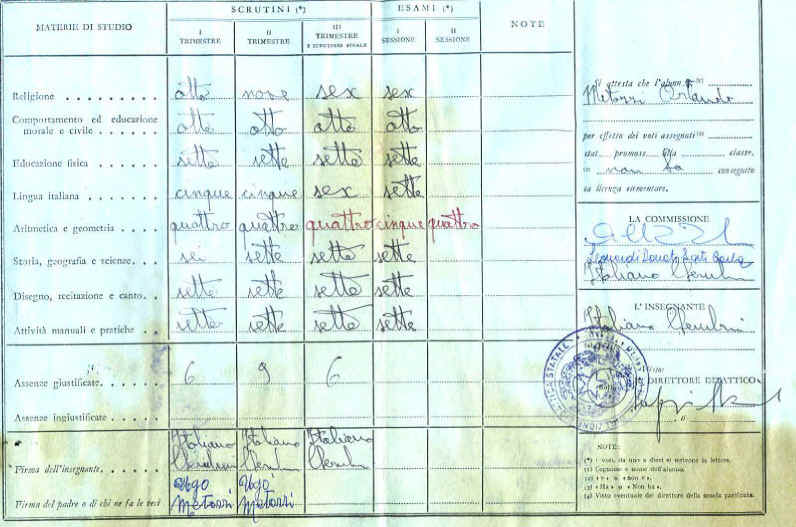 MATERIE DI STUDIO
SCRUTINI (*)
ESAMI (*)
NOTE
I TRIMESTRE
II TRIMESTRE
III TRIMESTRE
E SCRUTINIO FINALE
I SESSIONE
II SESSIONE
Religione otto nove sex sex
Comportamento ed educazione
morale e civile otto otto otto otto
Educazione fisica sette sette sette sette
Lingua italiana cinque cinque sex sette
Aritmetica e geometria quattro quattro quattro cinque quattro
Storia, geografia e scienze sei sette sette sette
Disegno, recitazione e canto sette sette sette sette
Attività manuali e pratiche sette sette sette sette
Assenze giustificate 6 9 6
Assenze ingiustificate
Italiano Italiano Italiano
Firma dell'insegnante
Ugo Ugo
Firma del padre o di chi ne fa le veci Metozzi Metozzi
Si attesta che l'alunno
Metozzi Orlando
per effetto dei voti assegnati
stat promoss alla classe,
non ha conseguito
la licenza elementare.
LA COMMISSIONE
Italiano
L'INSEGNANTE
Italiano
Visto:
IL DIRETTORE DIDATTICO
NOTE:
(*) I voti, da uno a dieci si scrivono in lettere.
(1) Cognome e nome dell'alunno.
(2) «è» o «non è».
(3) «Ha» o «Non ha».
(4) Visto eventuale del direttore della scuola parificata.